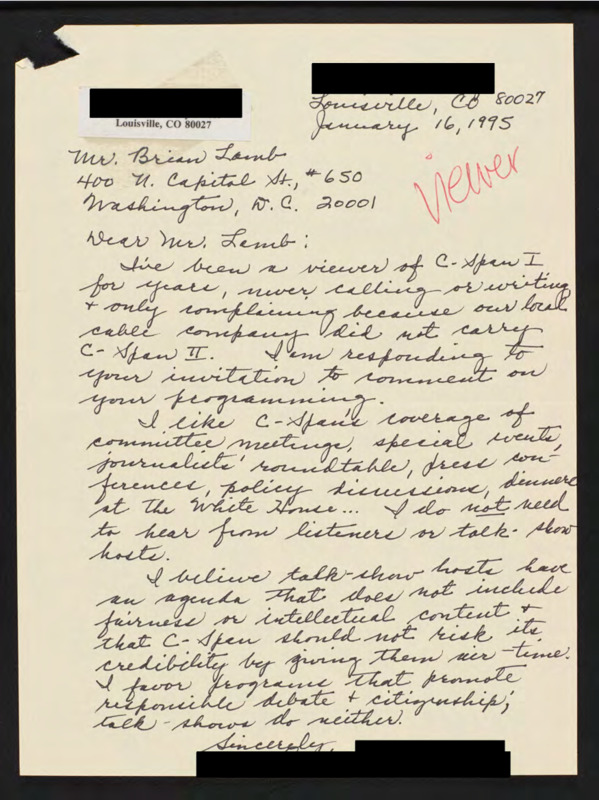 Louisville, CO 80027
Louisville, CO 80027
January 16, 1995
Mr. Brian Lamb
400 N. Capitol St., #650
Washington, D.C. 20001
viewer
Dear Mr. Lamb:
I've been a viewer of C-Span I
for years, never calling or writing
+ only complaining because our local
cable company did not carry
C-Span II. I am responding to
your invitation to comment on
your programming.
I like C-Span's coverage of
committee meetings, special events,
journalists' roundtable, press con-
ferences, policy discussions, dinners
at the White House... I do not need
to hear from listeners or talk-show
hosts.
I believe talk-show hosts have
an agenda that does not include
fairness or intellectual content +
that C-Span should not risk its
credibility by giving them air-time.
I favor programs that promote
responsible debate + citizenship;
talk-shows do neither.
Sincerely,